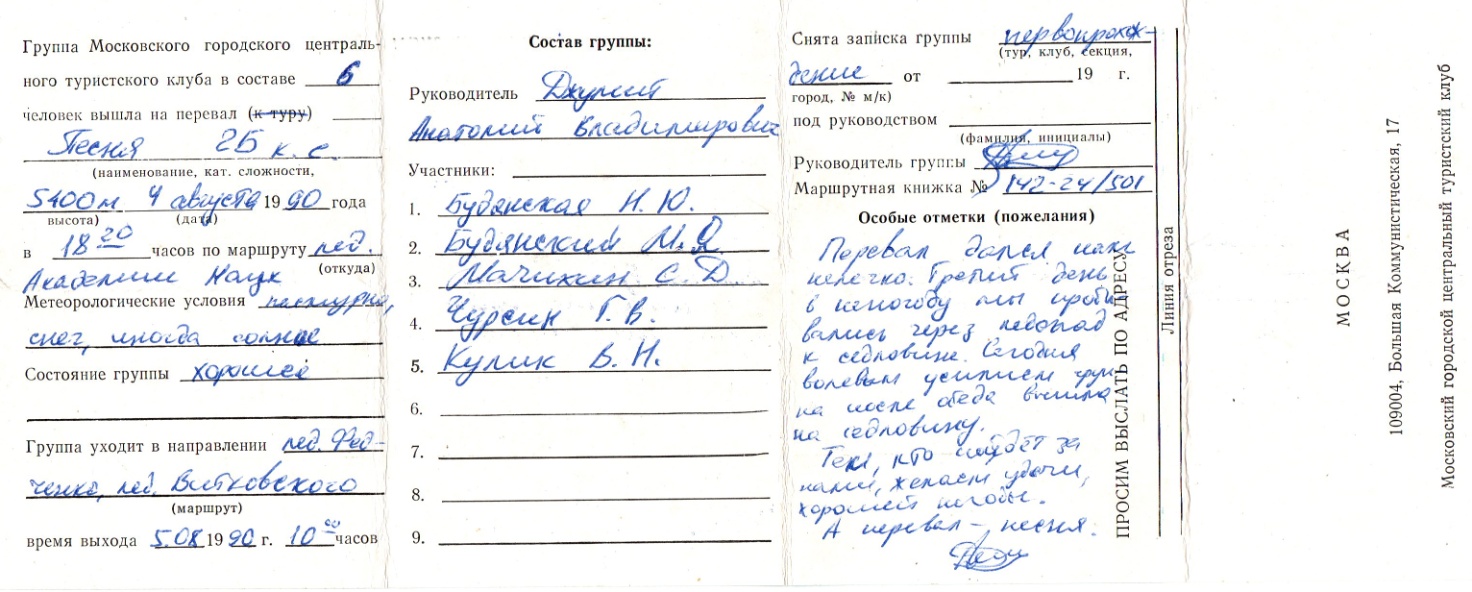 Группа Московского городского централь-
ного туристского клуба в составе 6
человек вышла на перевал (к туру)
Песня 2Б к.с.
(наименование, кат. сложности,
5400м 4 августа 1990 года
высота) (дата)
в 18 20 часов по маршруту лед.
(откуда)
Академии Наук
Метеорологические условия пасмурно,
снег, иногда солнце
Состояние группы хорошее
Группа уходит в направлении лед. Фед-
ченко, лед. Витковского
(маршрут)
время выхода 5.08 1990 г. 10 00 часов
Состав группы:
Руководитель Джулий
Анатолий Владимирович
Участники:
1. Будянская Н. Ю.
2. Будянский М. Я.
3. Мачихин С. Д.
4. Чурсин Г. В.
5. Кулик В. Н.
6.
7.
8.
9.
Снята записка группы первопрохож-
(тур, клуб, секция,
дение от 19 г.
город, № м/к)
под руководством
(фамилия, инициалы)
Руководитель группы
Маршрутная книжка № 142-24/501
Особые отметки (пожелания)
Перевал дался нам
нелегко. Третий день
в непогоду мы проби
вались через ледопад
к седловине. Сегодня
волевым усилием груп
па после обеда вышла
на седловину.
Тем, кто пойдёт за
нами, желаем удачи,
хорошей погоды.
А перевал – песня.
ПРОСИМ ВЫСЛАТЬ ПО АДРЕСУ
Линия отреза
МОСКВА
109004, Большая Коммунистическая, 17
Московский городской центральный туристский клуб